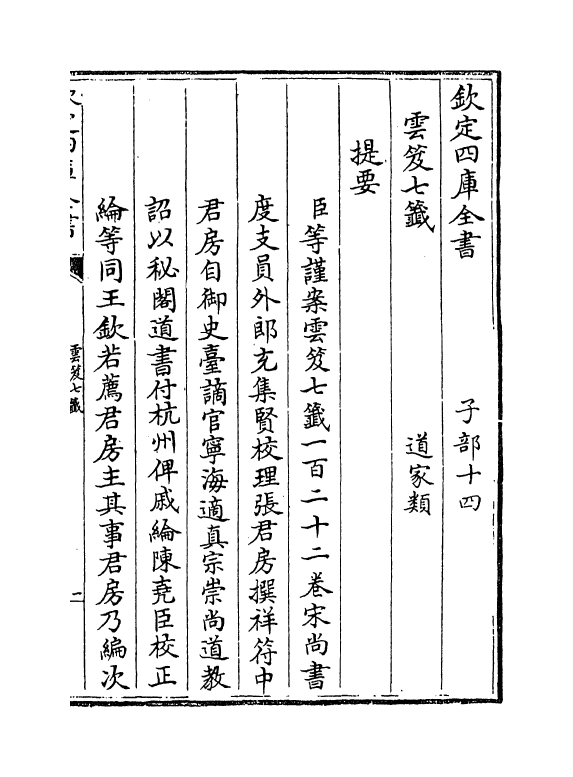 欽定四庫全書　子部十四
雲笈七籤　道家類
提要
臣等謹案雲笈七籤一百二十二卷宋尚書
度支員外郎充集賢校理張君房撰祥符中
君房自御史臺謫官寧海適真宗崇尚道教
詔以秘閣道書付杭州俾戚綸陳堯臣校正
綸等同王欽若薦君房主其事君房乃編次
雲笈七籤